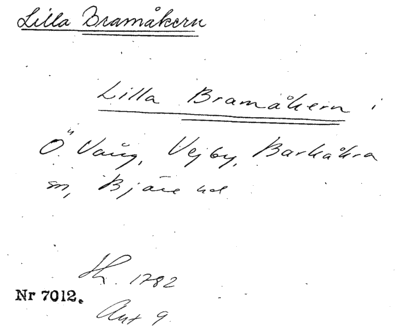 Lilla Bramåkern
Lilla Bramåkern i
Ö. Vång, Vejby, Barkåkra
sn, Bjäre hd
Sk. 1782
Nr 7012.
Akt 9